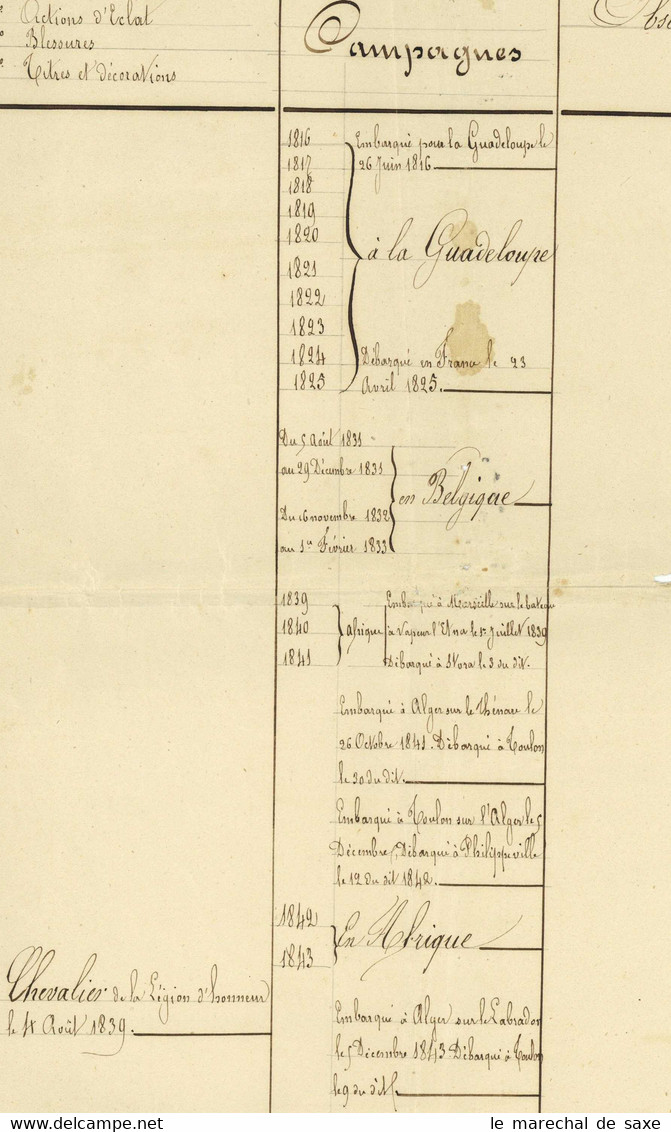 Actions d'Eclat
Blessures
Titres et décorations
Campagnes
1816
1817
1818
1819
1820
1821
1822
1823
1824
1825
Embarqué pour la Guadeloupe le
26 Juin 1816
à la Guadeloupe
Débarqué en France le 23
Avril 1825.
Du 5 Août 1831
au 29 Décembre 1831
Du 16 novembre 1832
au 1er Février 1833
en Belgique
1839
1840
1841
Afrique
Embarqué à Marseille sur le bateau
à vapeur l'Etna le 1er Juillet 1839
Débarqué à Stora le 3 du dit.
Embarqué à Alger sur le Thénare le
26 Octobre 1841. Débarqué à Toulon
le 30 du dit.
Embarqué à Toulon sur l'Alger le 5
Décembre, Débarqué à Philippeville
le 12 du dit 1842.
1842
1843
En Afrique
Chevalier de la Légion d'honneur
le 4 Août 1839.
Embarqué à Alger sur le Labrador
le 5 Décembre 1843 Débarqué à Toulon
le 9 du dit.
le marechal de saxe